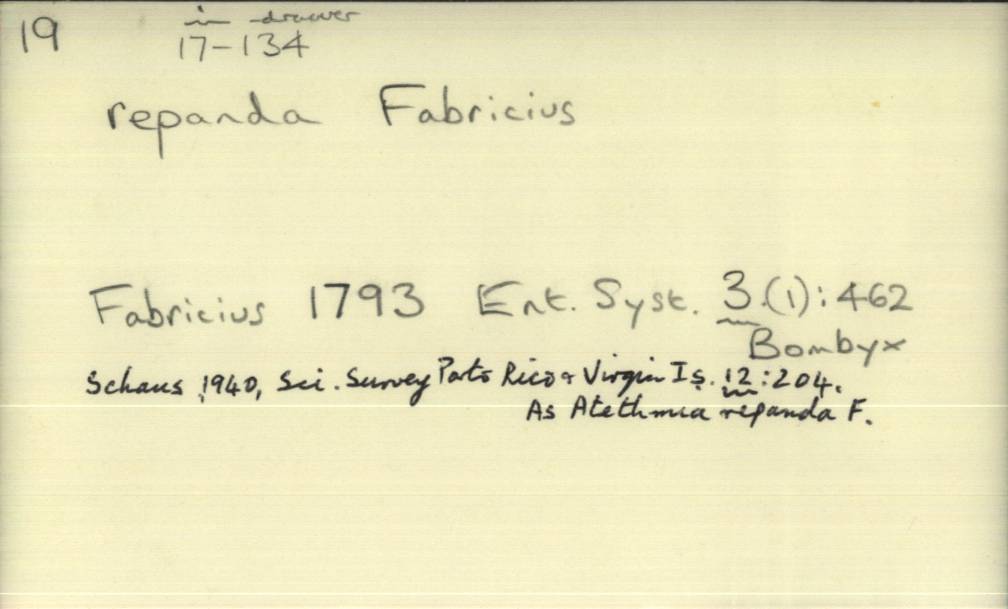 19
in drawer
17-134
repanda Fabricius
Fabricius 1793 Ent. Syst. 3.(1):462
Bombyx
Schaus 1940, Sci. Survey Porto Rico & Virgin Is. 12:204.
As Atethmia repanda F.